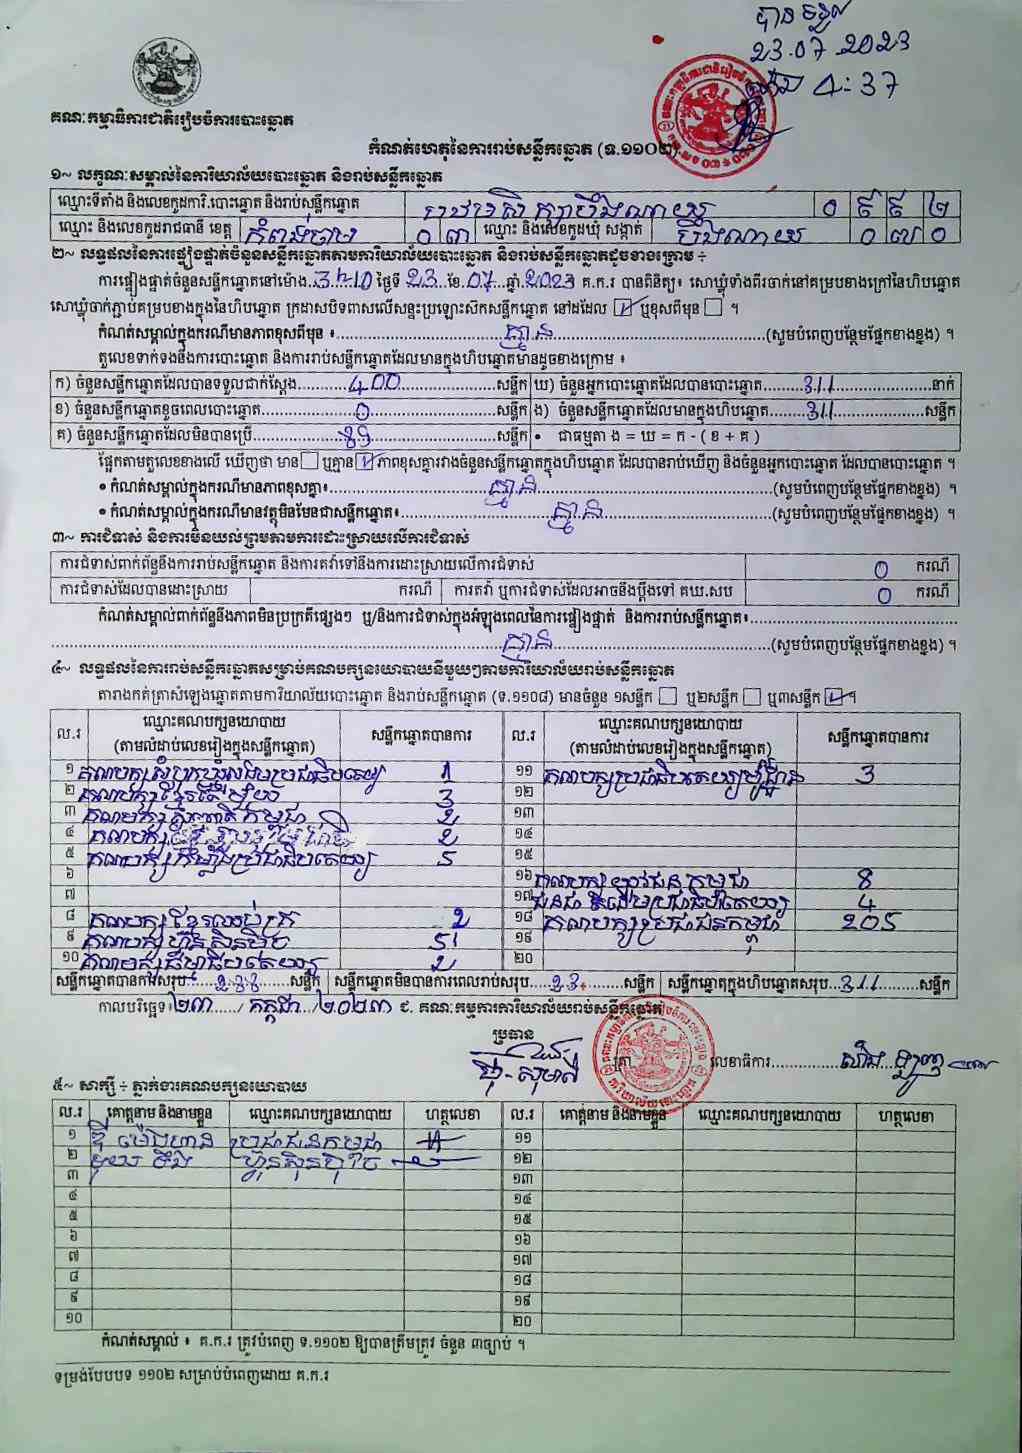 បានទទួល
23.07.2023
ម៉ោង 4:37
គណៈកម្មាធិការជាតិរៀបចំការបោះឆ្នោត
កំណត់ហេតុនៃការរាប់សន្លឹកឆ្នោត (ទ.១១០២)
១~ លក្ខណៈសម្គាល់នៃការិយាល័យបោះឆ្នោត និងរាប់សន្លឹកឆ្នោត
ឈ្មោះទីតាំង និងលេខកូដការិ.បោះឆ្នោត និងរាប់សន្លឹកឆ្នោត ០ ៩ ៩ ២
ឈ្មោះ និងលេខកូដរាជធានី ខេត្ត កំពង់ចាម ០ ៣ ឈ្មោះ និងលេខកូដឃុំ សង្កាត់ បឹងណាយ ០ ៧ ០
២~ លទ្ធផលនៃការផ្ទៀងផ្ទាត់ចំនួនសន្លឹកឆ្នោតតាមការិយាល័យបោះឆ្នោត និងរាប់សន្លឹកឆ្នោតដូចខាងក្រោម ÷
ការផ្ទៀងផ្ទាត់ចំនួនសន្លឹកឆ្នោតនៅម៉ោង 3h-10 ថ្ងៃទី 23 ខែ 07 ឆ្នាំ 2023 គ.ក.រ បានពិនិត្យ៖ សោឃ្លុំទាំងពីរចាក់នៅគម្របខាងក្រៅនៃហិបឆ្នោត
សោឃ្លុំចាក់ភ្ជាប់គម្របខាងក្នុងនៃហិបឆ្នោត ក្រដាសបិទពាសលើសន្ទះប្រឡោះសឹកសន្លឹកឆ្នោត នៅដដែល ☑ ឬខុសពីមុន ☐ ។
កំណត់សម្គាល់ក្នុងករណីមានភាពខុសពីមុន ៖ គ្មាន (សូមបំពេញបន្ថែមផ្នែកខាងខ្នង) ។
តួលេខទាក់ទងនឹងការបោះឆ្នោត និងការរាប់សន្លឹកឆ្នោតដែលមានក្នុងហិបឆ្នោតមានដូចខាងក្រោម ៖
ក) ចំនួនសន្លឹកឆ្នោតដែលបានទទួលជាក់ស្តែង 400 សន្លឹក ឃ) ចំនួនអ្នកបោះឆ្នោតដែលបានបោះឆ្នោត 311 នាក់
ខ) ចំនួនសន្លឹកឆ្នោតខូចពេលបោះឆ្នោត 0 សន្លឹក ង) ចំនួនសន្លឹកឆ្នោតដែលមានក្នុងហិបឆ្នោត 311 សន្លឹក
គ) ចំនួនសន្លឹកឆ្នោតដែលមិនបានប្រើ 89 សន្លឹក • ជាធម្មតា ង = ឃ = ក - ( ខ + គ )
ផ្អែកតាមតួលេខខាងលើ ឃើញថា មាន ☐ ឬគ្មាន ☑ ភាពខុសគ្នារវាងចំនួនសន្លឹកឆ្នោតក្នុងហិបឆ្នោត ដែលបានរាប់ឃើញ និងចំនួនអ្នកបោះឆ្នោត ដែលបានបោះឆ្នោត ។
• កំណត់សម្គាល់ក្នុងករណីមានភាពខុសគ្នា៖ គ្មាន (សូមបំពេញបន្ថែមផ្នែកខាងខ្នង) ។
• កំណត់សម្គាល់ក្នុងករណីមានវត្ថុមិនមែនជាសន្លឹកឆ្នោត៖ គ្មាន (សូមបំពេញបន្ថែមផ្នែកខាងខ្នង) ។
៣~ ការជំទាស់ និងការមិនយល់ព្រមតាមការដោះស្រាយលើការជំទាស់
ការជំទាស់ពាក់ព័ន្ធនឹងការរាប់សន្លឹកឆ្នោត និងការតវ៉ាទៅនឹងការដោះស្រាយលើការជំទាស់ 0 ករណី
ការជំទាស់ដែលបានដោះស្រាយ ករណី ការតវ៉ា ឬការជំទាស់ដែលអាចនឹងប្តឹងទៅ គឃ.សប 0 ករណី
កំណត់សម្គាល់ពាក់ព័ន្ធនឹងភាពមិនប្រក្រតីផ្សេងៗ ឬ/និងការជំទាស់ក្នុងអំឡុងពេលនៃការផ្ទៀងផ្ទាត់ និងការរាប់សន្លឹកឆ្នោត៖
គ្មាន (សូមបំពេញបន្ថែមផ្នែកខាងខ្នង) ។
៤~ លទ្ធផលនៃការរាប់សន្លឹកឆ្នោតសម្រាប់គណបក្សនយោបាយនីមួយៗតាមការិយាល័យរាប់សន្លឹកឆ្នោត
តារាងកត់ត្រាសំឡេងឆ្នោតតាមការិយាល័យបោះឆ្នោត និងរាប់សន្លឹកឆ្នោត (ទ.១១០៨) មានចំនួន ១សន្លឹក ☐ ឬ២សន្លឹក ☐ ឬ៣សន្លឹក ☑ ។
ល.រ ឈ្មោះគណបក្សនយោបាយ (តាមលំដាប់លេខរៀងក្នុងសន្លឹកឆ្នោត) សន្លឹកឆ្នោតបានការ ល.រ ឈ្មោះគណបក្សនយោបាយ (តាមលំដាប់លេខរៀងក្នុងសន្លឹកឆ្នោត) សន្លឹកឆ្នោតបានការ
១ គណបក្សសំបុកឃ្មុំសង្គមប្រជាធិបតេយ្យ 1 ១១ 3
២ គណបក្សខ្មែរតែមួយ 3 ១២
៣ គណបក្ស កម្ពុជា 2 ១៣
៤ គណបក្ស 2 ១៤
៥ គណបក្សកម្លាំងប្រជាធិបតេយ្យ 5 ១៥
៦ ១៦ គណបក្សយុវជនកម្ពុជា 8
៧ ១៧ 4
៨ គណបក្សខ្មែរឈប់ក្រ 2 ១៨ គណបក្សប្រជាជនកម្ពុជា 205
៩ គណបក្សហ៊្វុនស៊ិនប៉ិច 51 ១៩
១០ គណបក្សធម្មាធិបតេយ្យ 2 ២០
សន្លឹកឆ្នោតបានការសរុប 288 សន្លឹក សន្លឹកឆ្នោតមិនបានការពេលរាប់សរុប 23 សន្លឹក សន្លឹកឆ្នោតក្នុងហិបឆ្នោតសរុប 311 សន្លឹក
កាលបរិច្ឆេទ ២៣ / កក្កដា / ២០២៣ ជ. គណៈកម្មការការិយាល័យរាប់សន្លឹកឆ្នោត
ប្រធាន
ត្រា
លេខាធិការ
៥~ សាក្សី ÷ ភ្នាក់ងារគណបក្សនយោបាយ
ល.រ គោត្តនាម និងនាមខ្លួន ឈ្មោះគណបក្សនយោបាយ ហត្ថលេខា ល.រ គោត្តនាម និងនាមខ្លួន ឈ្មោះគណបក្សនយោបាយ ហត្ថលេខា
១ ប្រជាជនកម្ពុជា ១១
២ ហ៊្វុនស៊ិនប៉ិច ១២
៣ ១៣
៤ ១៤
៥ ១៥
៦ ១៦
៧ ១៧
៨ ១៨
៩ ១៩
១០ ២០
កំណត់សម្គាល់ ៖ គ.ក.រ ត្រូវបំពេញ ទ.១១០២ ឱ្យបានត្រឹមត្រូវ ចំនួន ៣ច្បាប់ ។
ទម្រង់បែបបទ ១១០២ សម្រាប់បំពេញដោយ គ.ក.រ